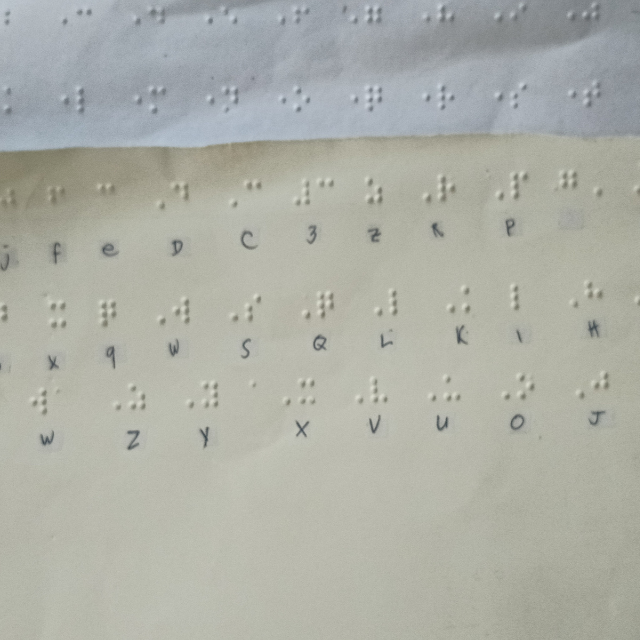 j f e D C 3 z R P
x q W S Q L K l H
w Z Y X V U O J